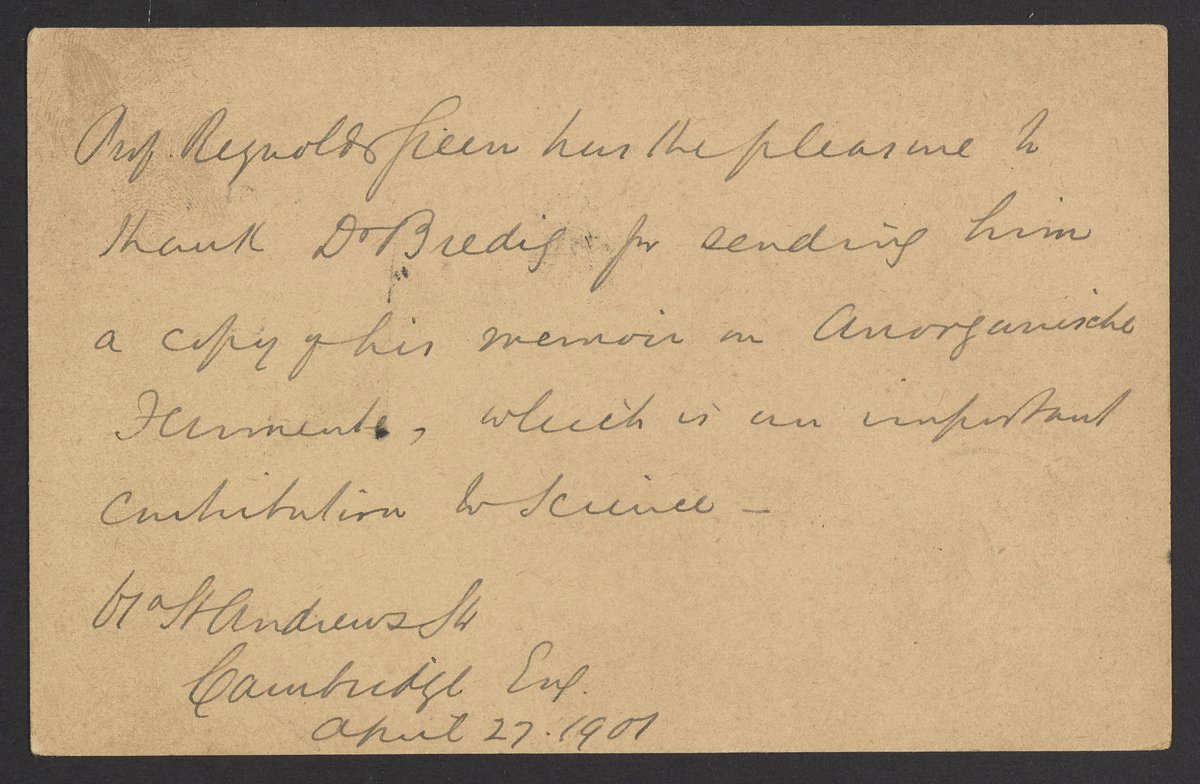 Prof. Reynolds Green has the pleasure to
thank Dr Bredig for sending him
a copy of his memoir on Anorganische
Fermente, which is an important
contribution to Science –
61a St Andrews St
Cambridge Eng.
April 27. 1901